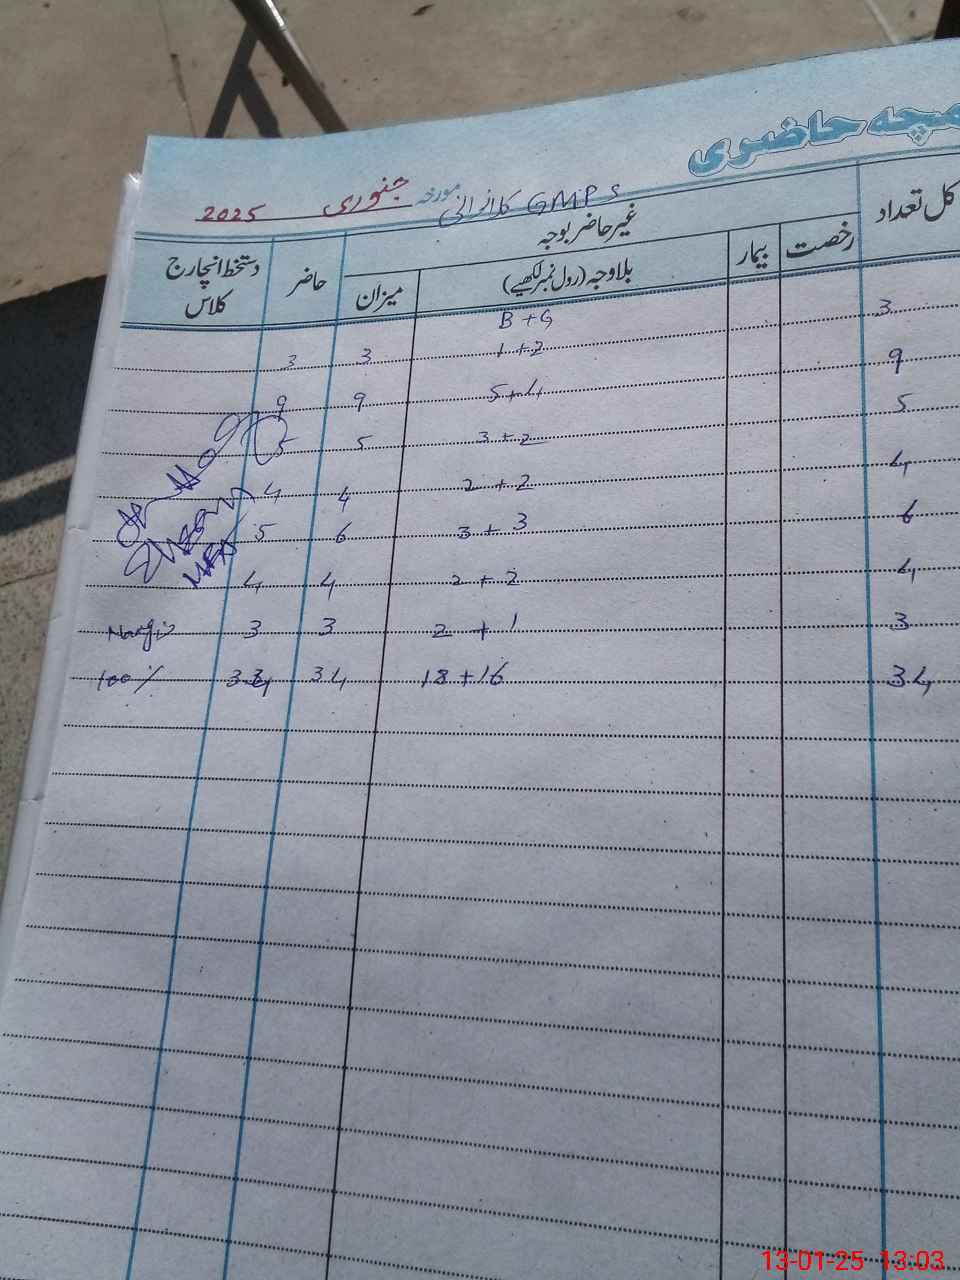 حاضری
GMPS کلانرانی مورخہ جنوری 2025
کل تعداد رخصت بیمار غیر حاضر بوجہ حاضر دستخط انچارج کلاس
بلاوجہ (رول نمبر لکھیے) میزان
B + G
3 1+2 3 3
9 5+4 9 9
5 3+2 5 5
4 2+2 4 4
6 3+3 6 5
4 2+2 4 4
3 2+1 3 3
34 18+16 34 34 100%
13-01-25 13:03